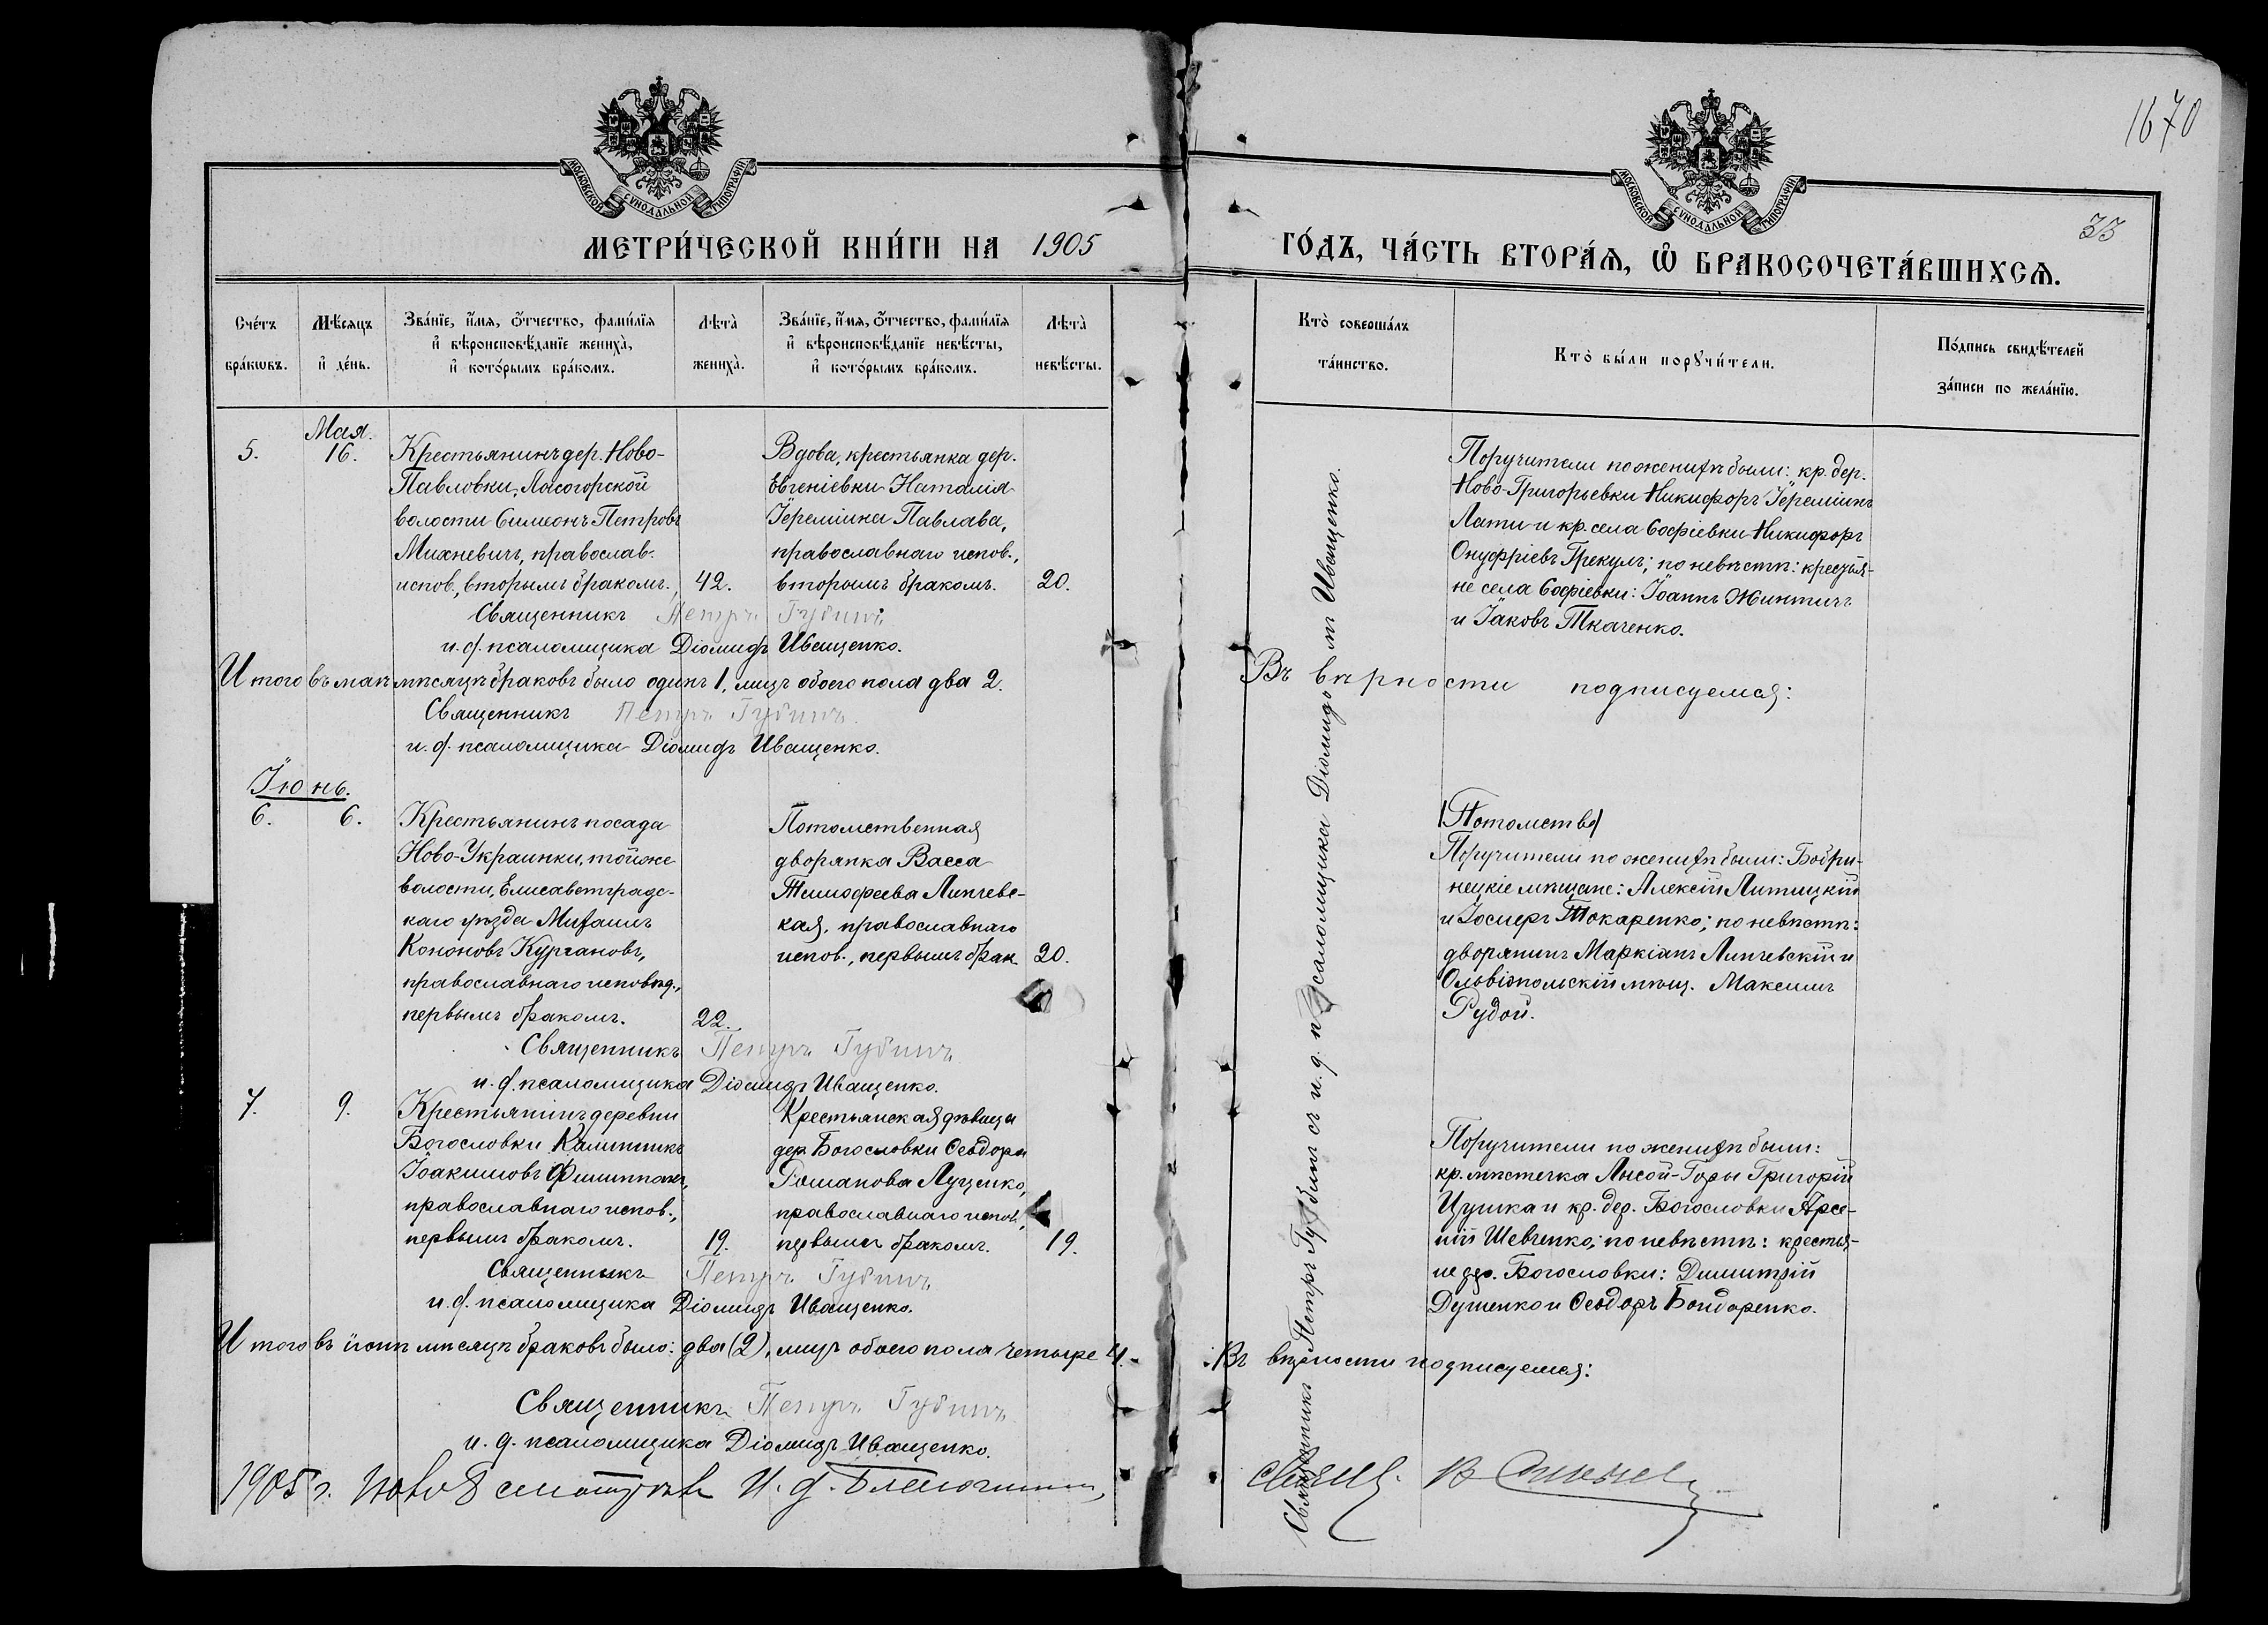 1670
33
МОСКОВСКОЙ СѴНОДАЛЬНОЙ ТИПОГРАФІИ
МЕТРИ́ЧЕСКОЙ КНИ́ГИ НА 1905
МОСКОВСКОЙ СѴНОДАЛЬНОЙ ТИПОГРАФІИ
ГО́ДЪ, ЧА́СТЬ ВТОРА́Ѧ, Ѽ БРАКОСОЧЕТА́ВШИХСѦ.
Сче́тъ
бра́кѡвъ.
Мѣ́сяцъ
и҆ де́нь.
Зва́нїе, и҆́мя, ѻ҆́тчество, фами́лїя
и҆ вѣроисповѣ́данїе жениха̀,
и҆ кото́рымъ бра́комъ.
Лѣта̀
жениха̀.
Зва́нїе, и҆́мя, ѻ҆́тчество, фами́лїя
и҆ вѣроисповѣ́данїе невѣ́сты,
и҆ кото́рымъ бра́комъ.
Лѣта̀
невѣ́сты.
Кто̀ соверша́лъ
та́инство.
Кто̀ бы́ли порꙋчи́тели.
По́дпись свидѣ́телей
за́писи по жела́нїю.
Мая.
5.
16.
Крестьянинъ дер. Ново-
Павловки, Лысогорской
волости Симеонъ Петровъ
Михневичъ, православ.
испов., вторымъ бракомъ.
42.
Вдова, крестьянка дер.
Евгеніевки Наталія
Іереміина Павлава,
православнаго испов.,
вторымъ бракомъ.
20.
Поручители по женихѣ были: кр. дер.
Ново-Григорьевки Никифоръ Іереміинъ
Лати и кр. села Софіевки Никифоръ
Онуфріевъ Грекулъ; по невѣстѣ: крестья-
не села Софіевки: Іоаннъ Жинтичъ
и Іаковъ Ткаченко.
Священникъ Петръ Губинъ
и. д. псаломщика Діомидъ Иващенко.
Итого въ маѣ мѣсяцѣ браковъ было одинъ 1, лицъ обоего пола два 2.
Въ вѣрности подписуемся:
Священникъ Петръ Губинъ
и. д. псаломщика Діомидъ Иващенко.
Священникъ Петръ Губинъ съ и. д. псаломщика Діомидомъ Иващенко.
Іюнь.
6.
6.
Крестьянинъ посада
Ново-Украинки, тойже
волости, Елисаветградс-
каго уѣзда Михаилъ
Кононовъ Кургановъ,
православнаго исповѣд.,
первымъ бракомъ.
22.
Потомственная
дворянка Васса
Тимофеева Липчевс-
кая, православнаго
испов., первымъ брак.
20.
Потомство
Поручители по женихѣ были: Бобри-
нецкіе мѣщане: Алексій Литицкій
и Іосифъ Токаренко; по невѣстѣ:
дворянинъ Маркіанъ Липчевскій и
Ольвіопольскій мѣщ. Максимъ
Рудой.
Священникъ Петръ Губинъ
и. д. псаломщика Діомидъ Иващенко.
7.
9.
Крестьянинъ деревни
Богословки Каллиникъ
Іоакимовъ Филиппокъ,
православнаго испов.,
первымъ бракомъ.
19.
Крестьянская дѣвица
дер. Богословки Ѳеодора
Романова Луценко,
православнаго испов.,
первымъ бракомъ.
19.
Поручители по женихѣ были:
кр. мѣстечка Лысой-Горы Григорій
Цушка и кр. дер. Богословки Арсе-
ній Шевченко; по невѣстѣ: крестья-
не дер. Богословки: Димитрій
Душенко и Ѳеодоръ Бондаренко.
Священникъ Петръ Губинъ
и. д. псаломщика Діомидъ Иващенко.
Итого въ іюнѣ мѣсяцѣ браковъ было: два (2), лицъ обоего пола четыре 4.
Въ вѣрности подписуемся:
Священникъ Петръ Губинъ
и. д. псаломщика Діомидъ Иващенко.
1905 г. смотрѣлъ И. д. Благочиннаго,
Свящ.